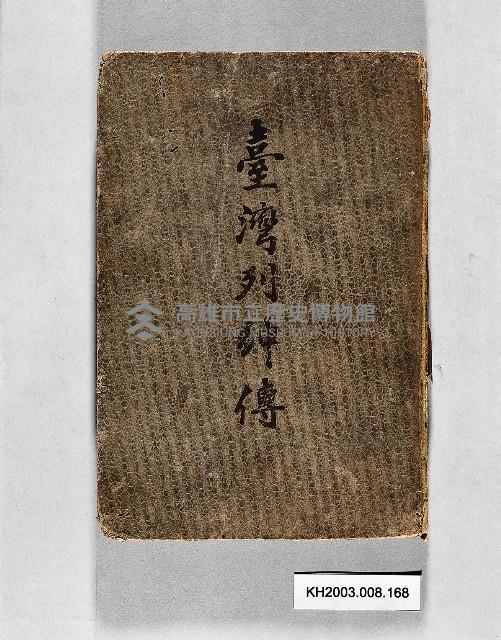 臺灣列紳傳
高雄市立歷史博物館
KAOHSIUNG MUSEUM OF HISTORY
KH2003.008.168